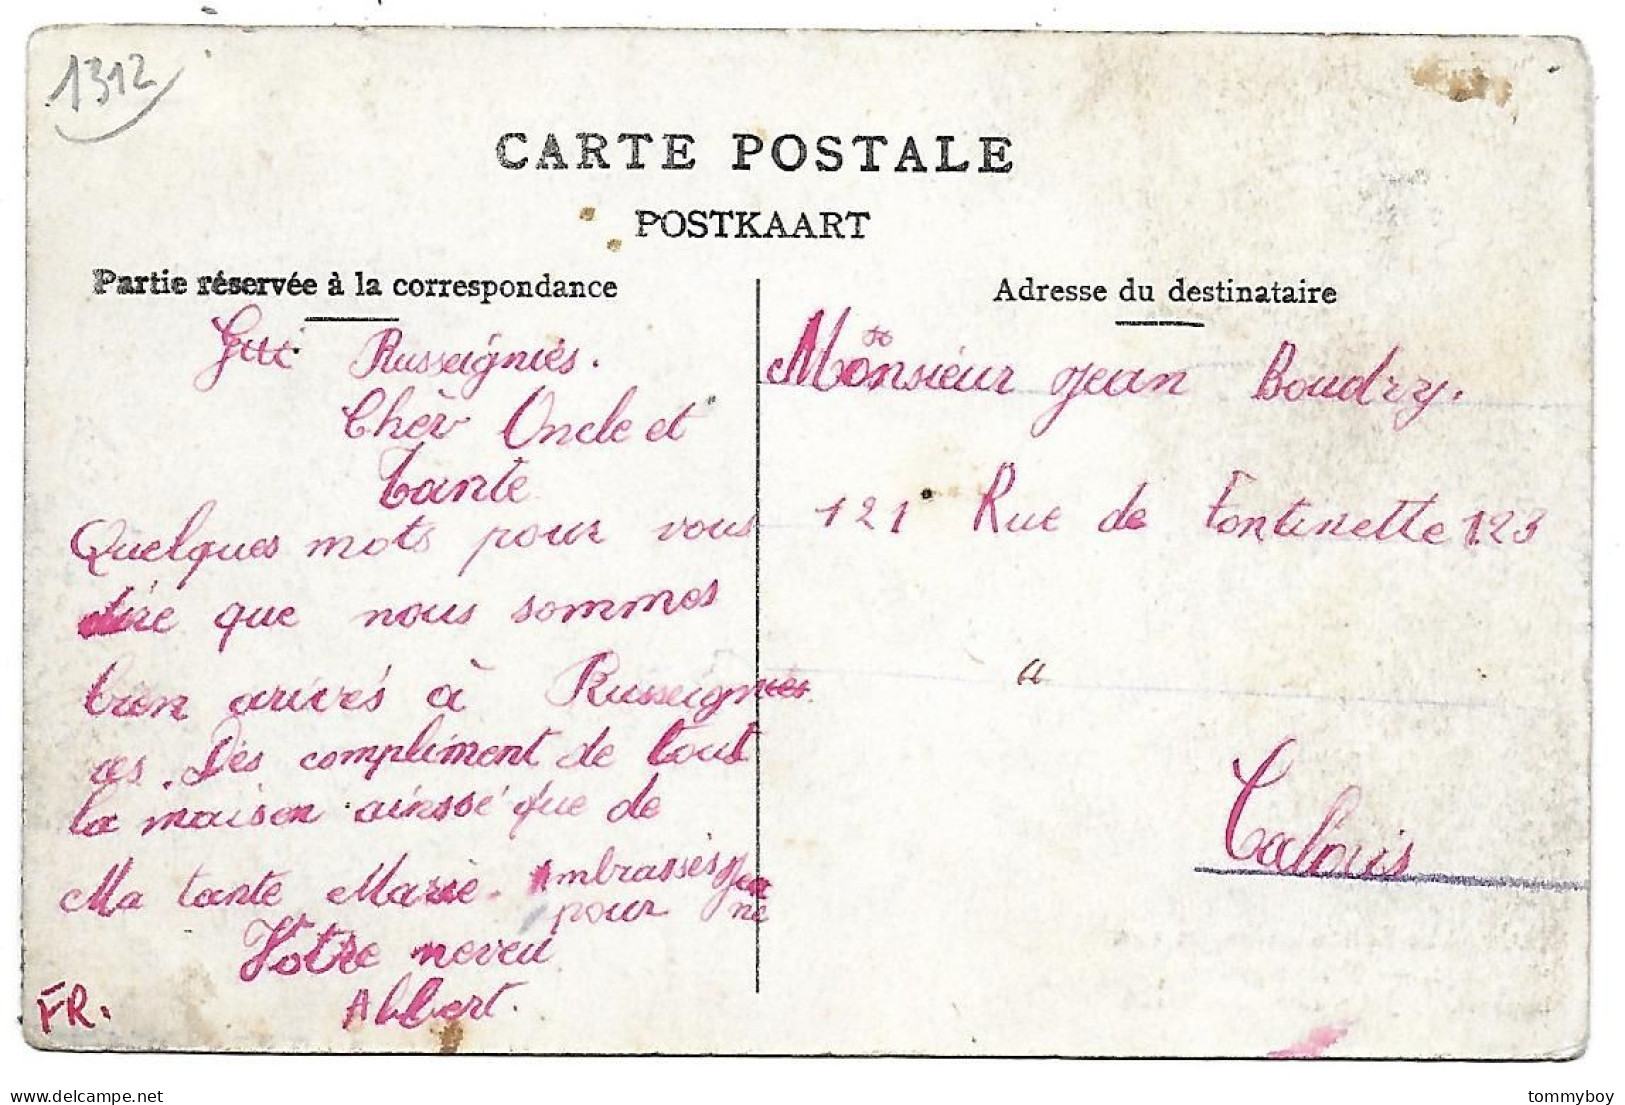 1312
CARTE POSTALE
POSTKAART
Partie réservée à la correspondance
Russeignies.
Chèr Oncle et
tante
Quelques mots pour vous
dire que nous sommes
bien arivés à Russeignies
es. Dés compliment de tout
la maison ainssé que de
Ma tante Marie. Ambrassés Jean
pour ne
Votre neveu
Albert.
FR.
Adresse du destinataire
Monsieur Jean Boudry.
121 Rue de Fontinette 123
a
Calais
delcampe.net
tommyboy